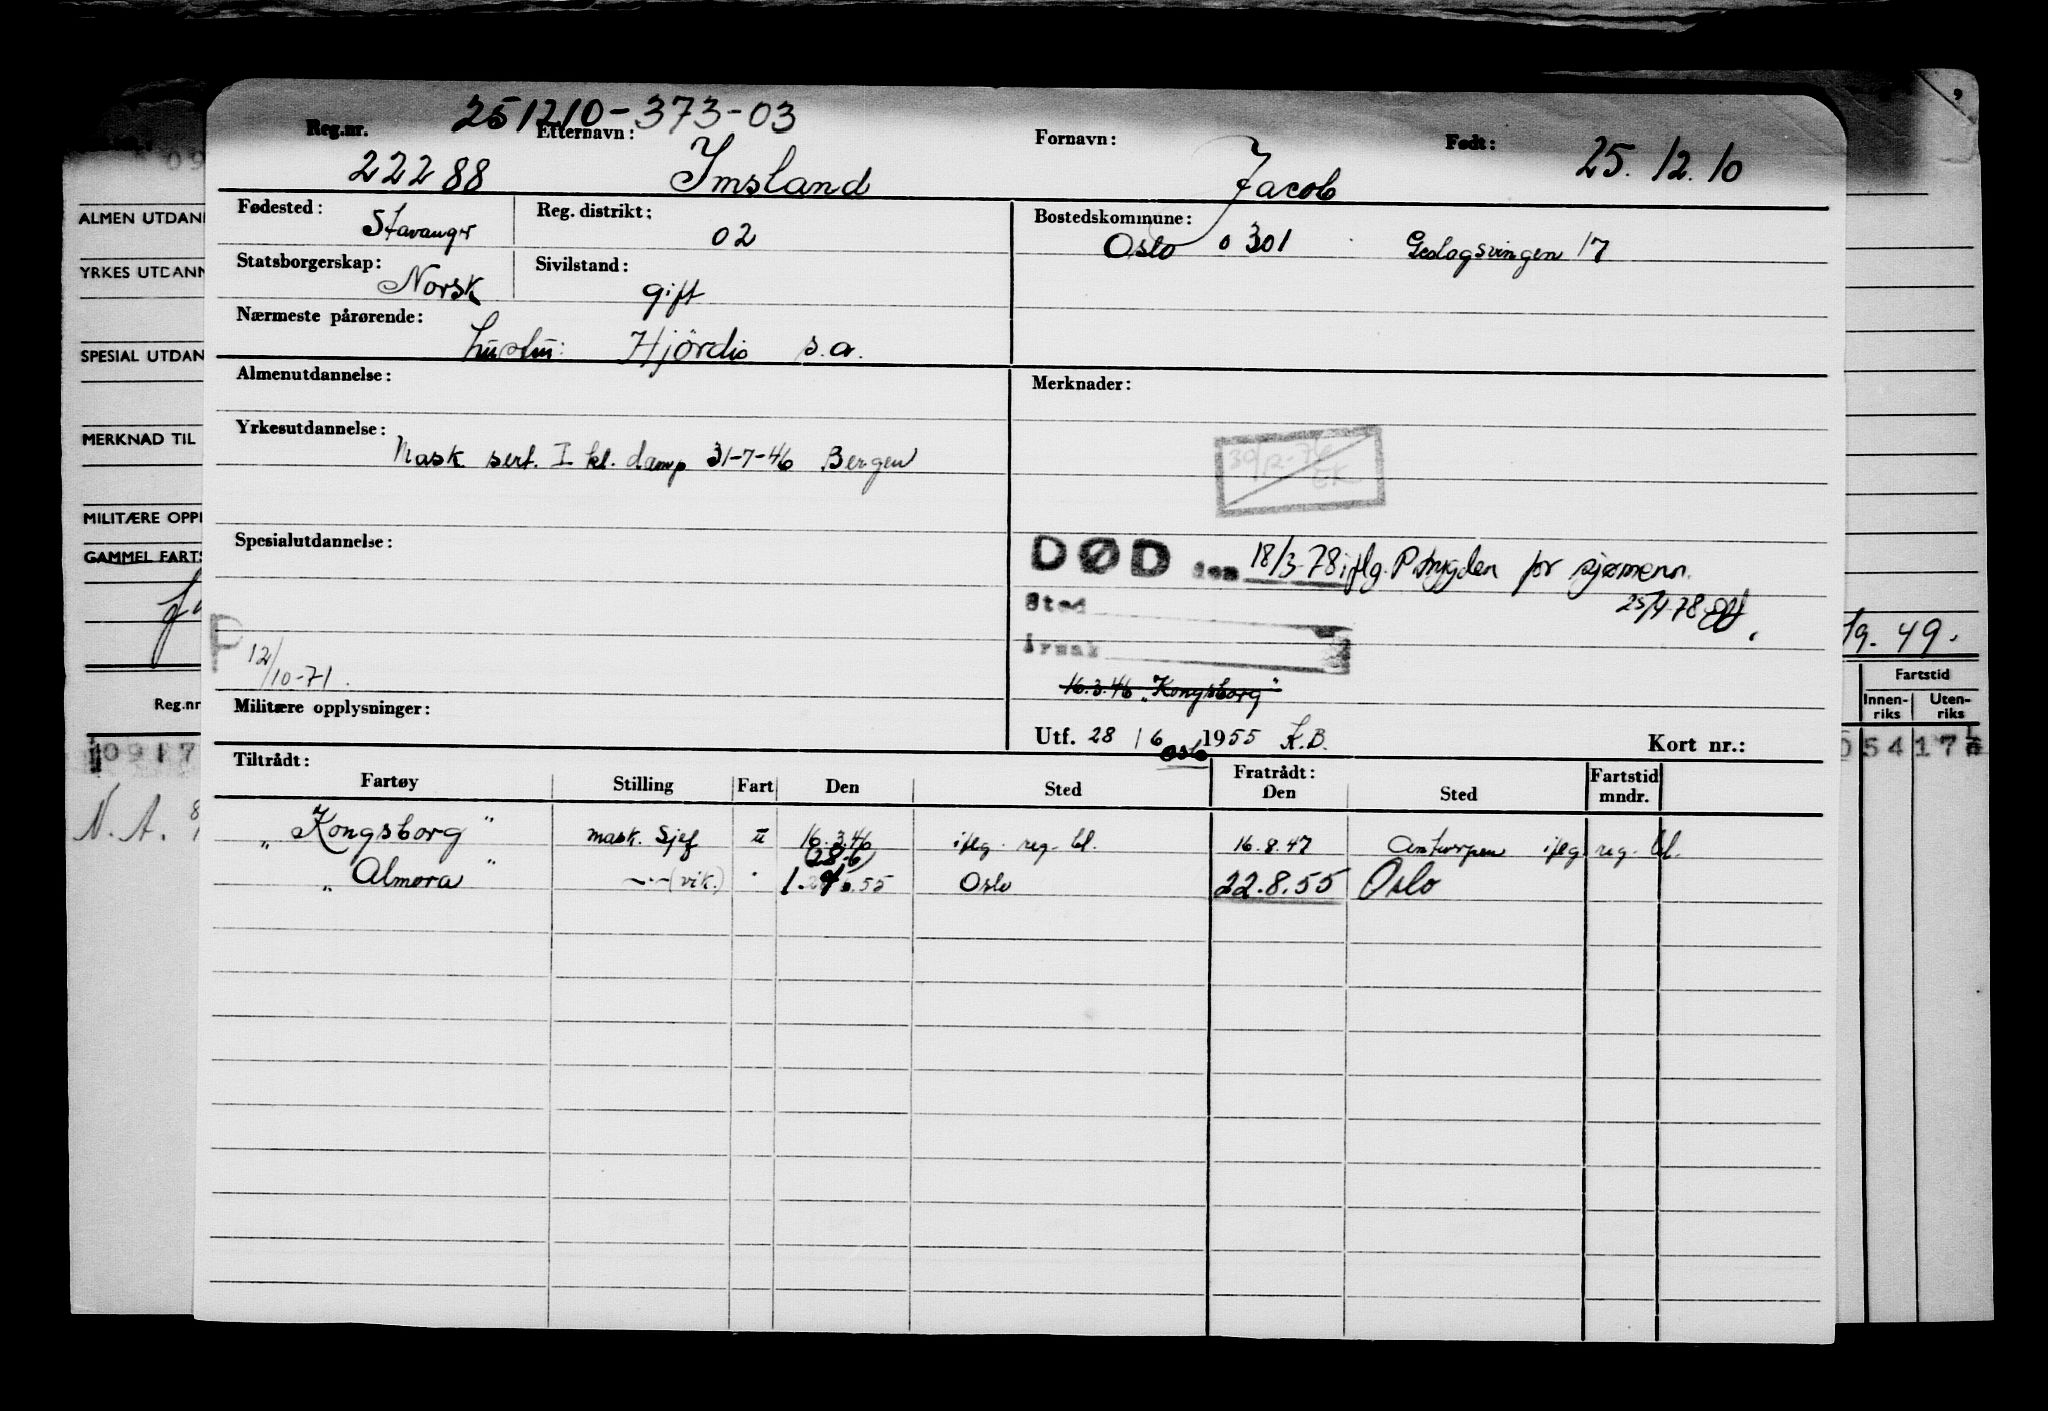 251210-373-03
Reg.nr. Etternavn: Fornavn: Født: 25.12.10
22288 Imsland Jacob
Fødested: Stavanger Reg. distrikt: 02 Bostedskommune: Oslo 0301 Geologsvingen 17
Statsborgerskap: Norsk Sivilstand: gift
Nærmeste pårørende: hustru: Hjördis s.a.
Almenutdannelse: Merknader:
Yrkesutdannelse: Mask. sert. I kl. damp 31-7-46 Bergen
Spesialutdannelse:
DØD den 18/3-78 iflg. P.trygden for sjømenn.
25/4-78
Sted
Årsak
P 12/10-71.
16.3.46 "Kongsborg"
Militære opplysninger:
Utf. 28/6 1955 K.B. Kort nr.:
Oslo
Tiltrådt: Fratrådt: Fartstid
Fartøy Stilling Fart Den Sted Den Sted mndr.
"Kongsborg" mask. sjef u 16.3.46 iflg. reg. bl. 16.8.47 Antwerpen iflg. reg. bl.
(28.6)
"Almora" -"- (vik.) " 1. 55 Oslo 22.8.55 Oslo
ALMEN UTDAN
YRKES UTDANN
SPESIAL UTDAN
MERKNAD TIL
MILITÆRE OPPL
GAMMEL FARTS
19.49.
Fartstid
Reg.nr Innen-riks Uten-riks
10917 05417
N.A. 8